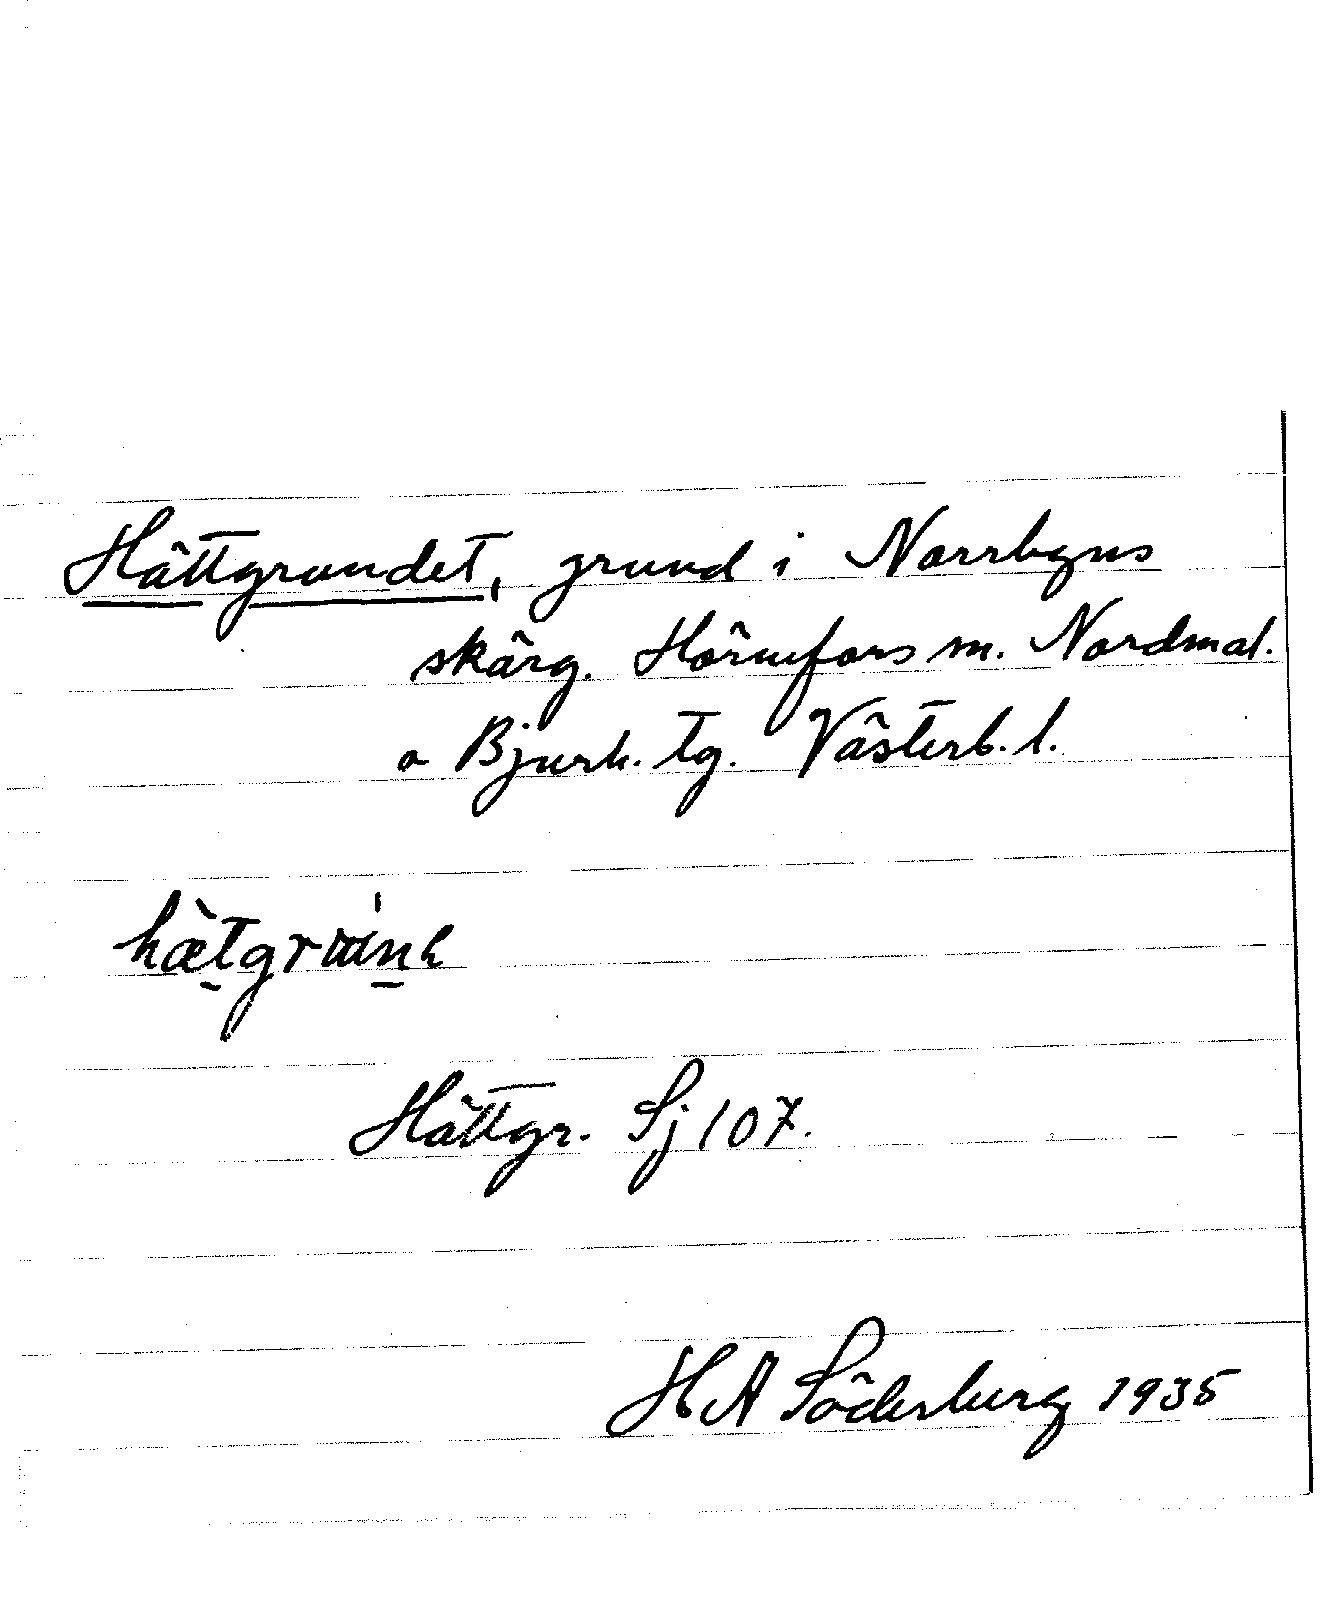 Hättgrundet, grund i Norrbyns
skärg. Hörnefors sn. Nordmal.
o Bjurh. tg. Västerb. l.
Hättgr. Sj 107.
H A Söderberg 1935